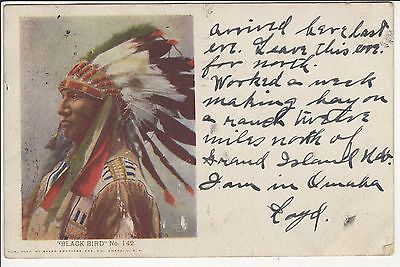 arrived here last
eve. Leave this eve.
for north.
Worked a week
making hay on
a ranch twelve
miles north of
Grand Island Neb.
I am in Omaha
Loyd.
"BLACK BIRD" No. 142